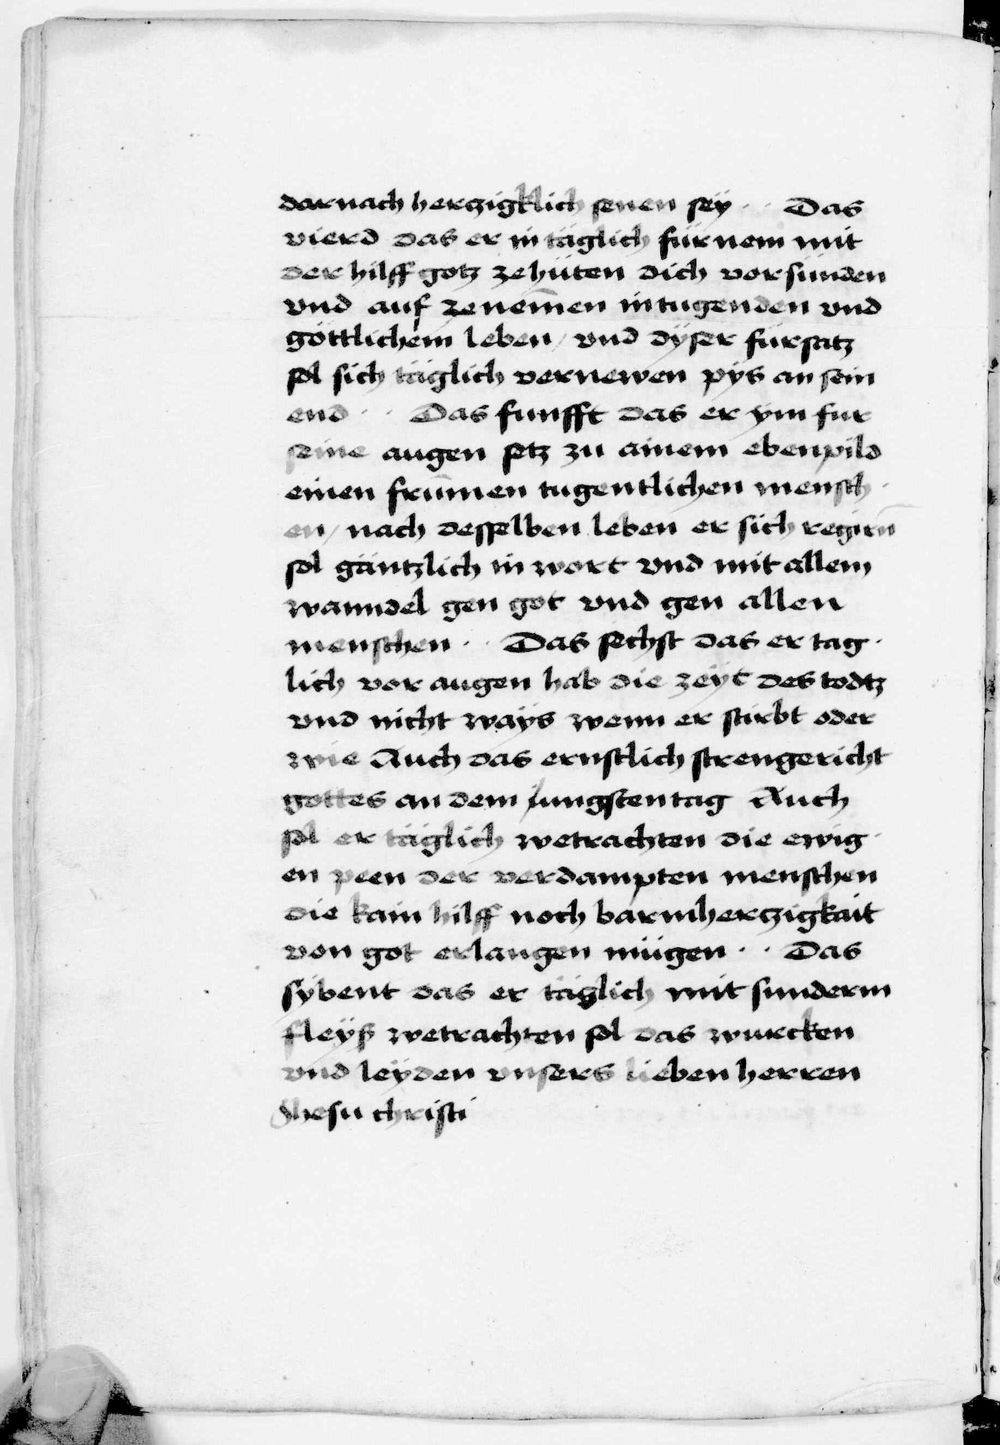 darnach herczigklich senen sey · · Das
vierd das er im täglich für nem mit
der hilff gotz ze hüten dich vor sünden
vnd auf ze nem̄en in tugenden vnd
göttlichem leben / vnd dÿser fürsatz
sol sich täglich vernewen pÿs an sein
end · · Das funfft das er ÿm fur
seine augen setz zu ainem ebenpild
einen frūmen tugentlichen mensch ·
en / nach desselben leben er sich regirn̄
sol gäntzlich in wort vnd mit allem
wanndel gen got vnd gen allen
menschen · · Das sechst das er tag ·
lich vor augen hab die zeÿt des todtz
vnd nicht waÿs wenn er stirbt oder
wie Auch das ernstlich streng gericht
gottes an dem jungsten tag Auch
sol er täglich wetrachten die ewig ·
en peen der verdampten menschen
die kain hilff noch barmherczigkait
von got erlangen mügen · · Das
sÿbent das er täglich mit sunderm
fleÿß wetrachten sol das wurcken
vnd leÿden vnsers lieben herren
Jhesu christi